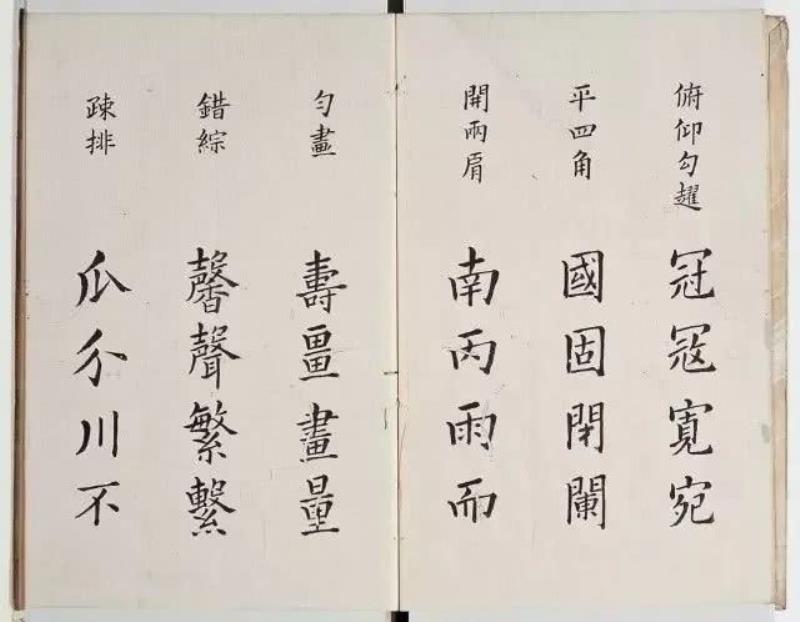 俯仰勾趯
冠冦寬宛
平四角
國固閉闌
開兩肩
南丙雨而
勻畫
壽畺畫量
錯綜
馨聲繁繫
疎排
瓜介川不